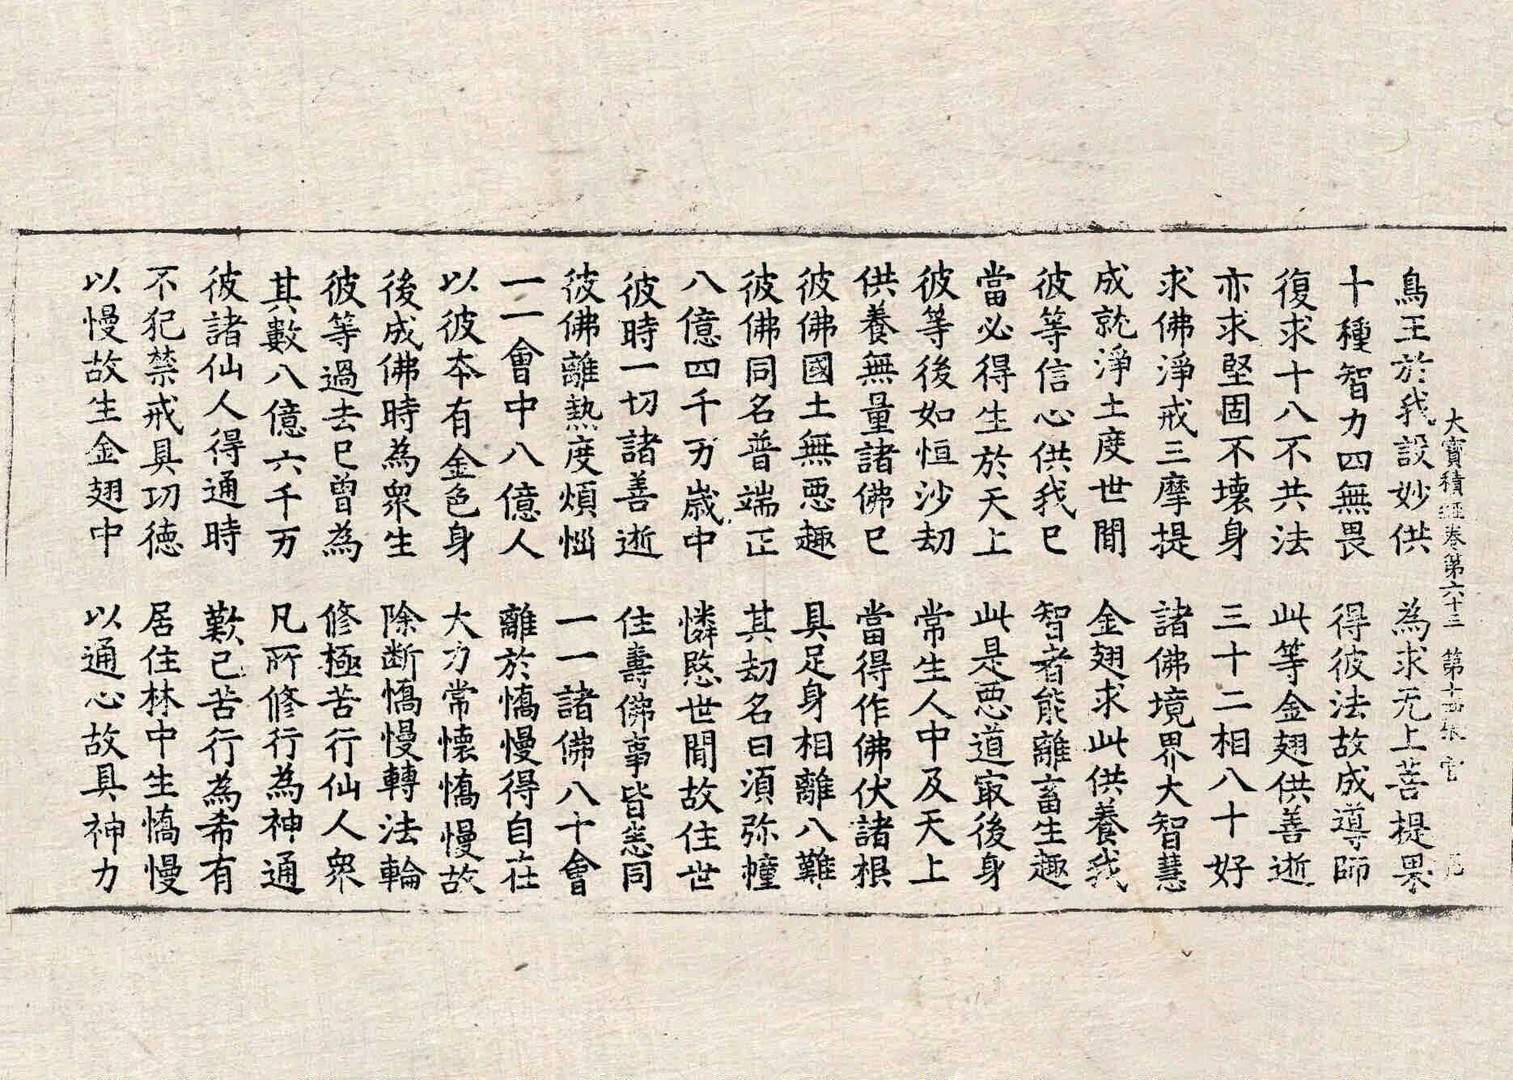 大寶積經卷第六十三 第十四張 官
鳥王於我設妙供 為求无上菩提果
十種智力四無畏 得彼法故成導師
復求十八不共法 此等金翅供善逝
亦求堅固不壞身 三十二相八十好
求佛淨戒三摩提 諸佛境界大智慧
成就淨土度世間 金翅求此供養我
彼等信心供我已 智者能離畜生趣
當必得生於天上 此是惡道冣後身
彼等後如恒沙劫 常生人中及天上
供養無量諸佛已 當得作佛伏諸根
彼佛國土無惡趣 具足身相離八難
彼佛同名普端正 其劫名曰須弥幢
八億四千万歲中 憐愍世間故住世
彼時一切諸善逝 住壽佛事皆悉同
彼佛離熱度煩惱 一一諸佛八十會
一一會中八億人 離於憍慢得自在
以彼本有金色身 大力常懷憍慢故
後成佛時為衆生 除断憍慢轉法輪
彼等過去已曾為 修極苦行仙人衆
其數八億六千万 凡所修行為神通
彼諸仙人得通時 歎已苦行為希有
不犯禁戒具功德 居住林中生憍慢
以慢故生金翅中 以通心故具神力